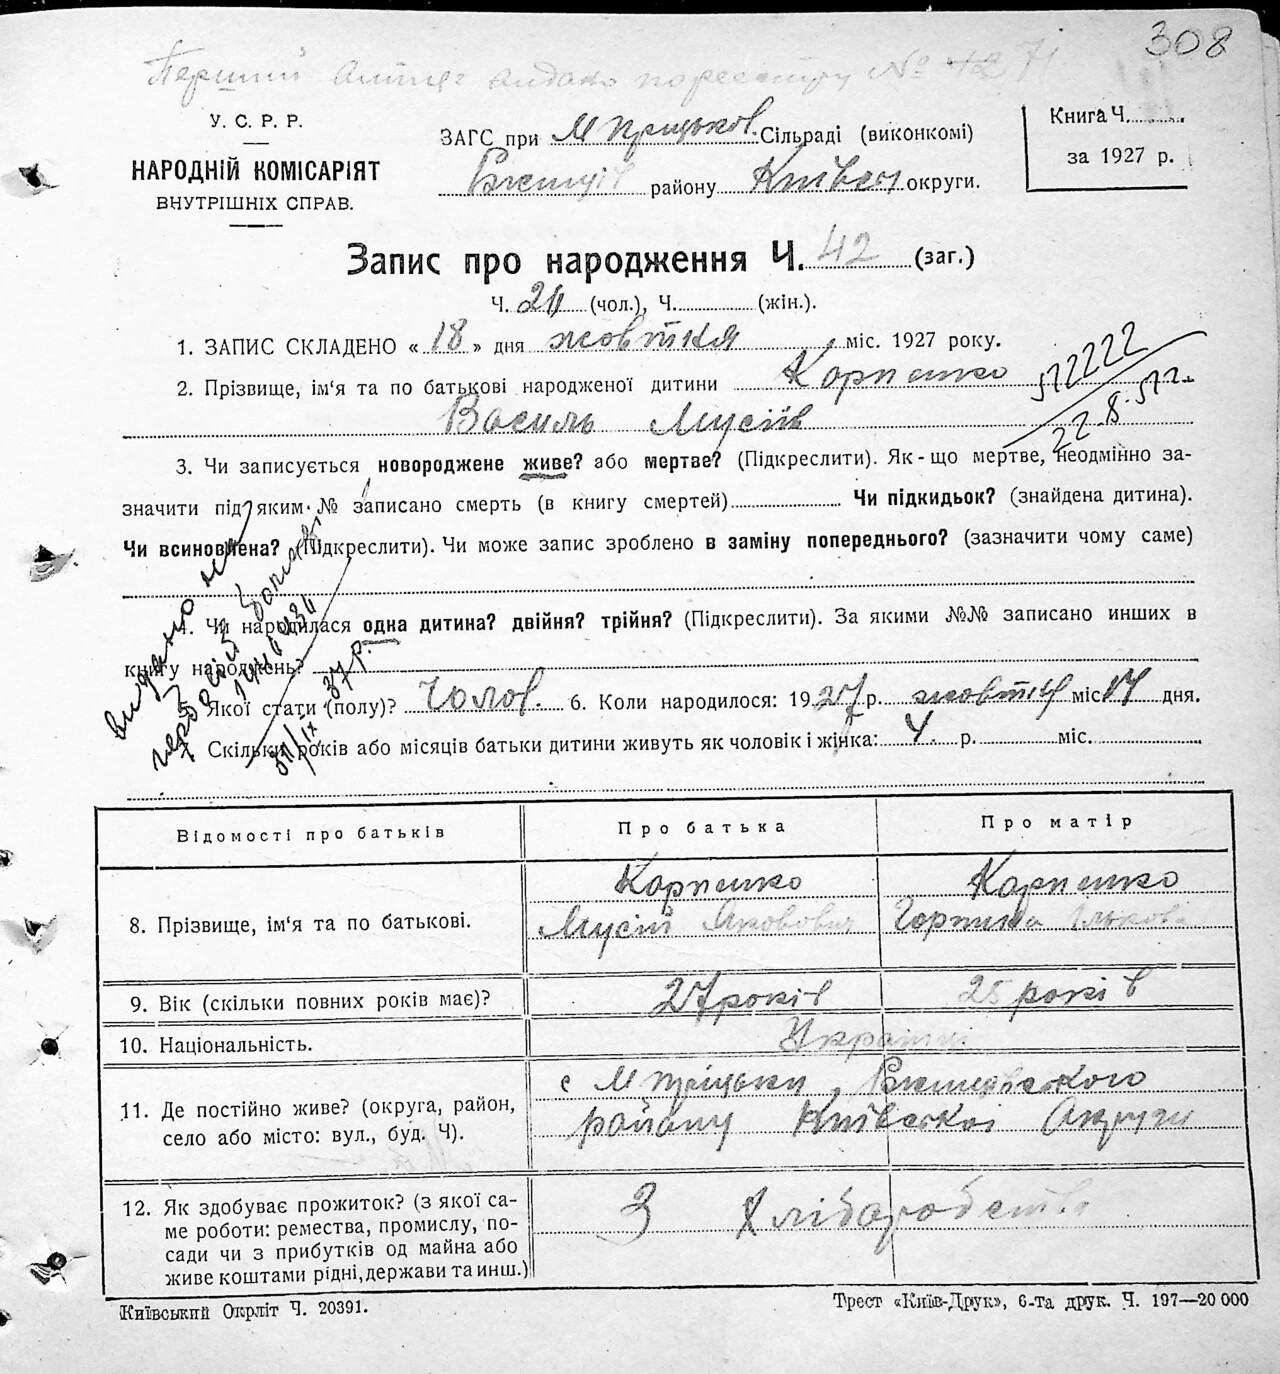 308
Перший
У. С. Р. Р.
НАРОДНІЙ КОМІСАРІЯТ
ВНУТРІШНІХ СПРАВ.
ЗАГС при Сільраді (виконкомі)
району Київськ округи.
Книга Ч.
за 1927 р.
Запис про народження Ч. 42 (заг.)
Ч. (чол.), Ч. (жін.).
1. ЗАПИС СКЛАДЕНО « 18 » дня жовтня міс. 1927 року.
2. Прізвище, ім‘я та по батькові народженої дитини Карпенко
Василь Мусіїв
512222
22.8.512.
3. Чи записується новороджене живе? або мертве? (Підкреслити). Як-що мертве, неодмінно за-
значити під яким № записано смерть (в книгу смертей) Чи підкидьок? (знайдена дитина).
Чи всиновлена? (Підкреслити). Чи може запис зроблено в заміну попереднього? (зазначити чому саме)
4. Чи народилася одна дитина? двійня? трійня? (Підкреслити). За якими №№ записано инших в
книгу народжень?
видано
5. Якої стати (полу)? Чолов. 6. Коли народилося: 1927 р. жовтня міс 17 дня.
Скільки років або місяців батьки дитини живуть як чоловік і жінка: 4 р. міс.
Відомості про батьків
Про батька
Про матір
8. Прізвище, ім‘я та по батькові.
Карпенко
Мусій Якович
Карпенко
ГорпинаІлькова
9. Вік (скільки повних років має)?
27 років
25 років
10. Національність.
Українці
11. Де постійно живе? (округа, район,
село або місто: вул., буд. Ч).
с
району Київської Округи
12. Як здобуває прожиток? (з якої са-
ме роботи: ремества, промислу, по-
сади чи з прибутків од майна або
живе коштами рідні, держави та инш.)
З Хліборобства
Київський Окрліт Ч. 20391.
Трест «Київ-Друк», 6-та друк. Ч. 197—20 000